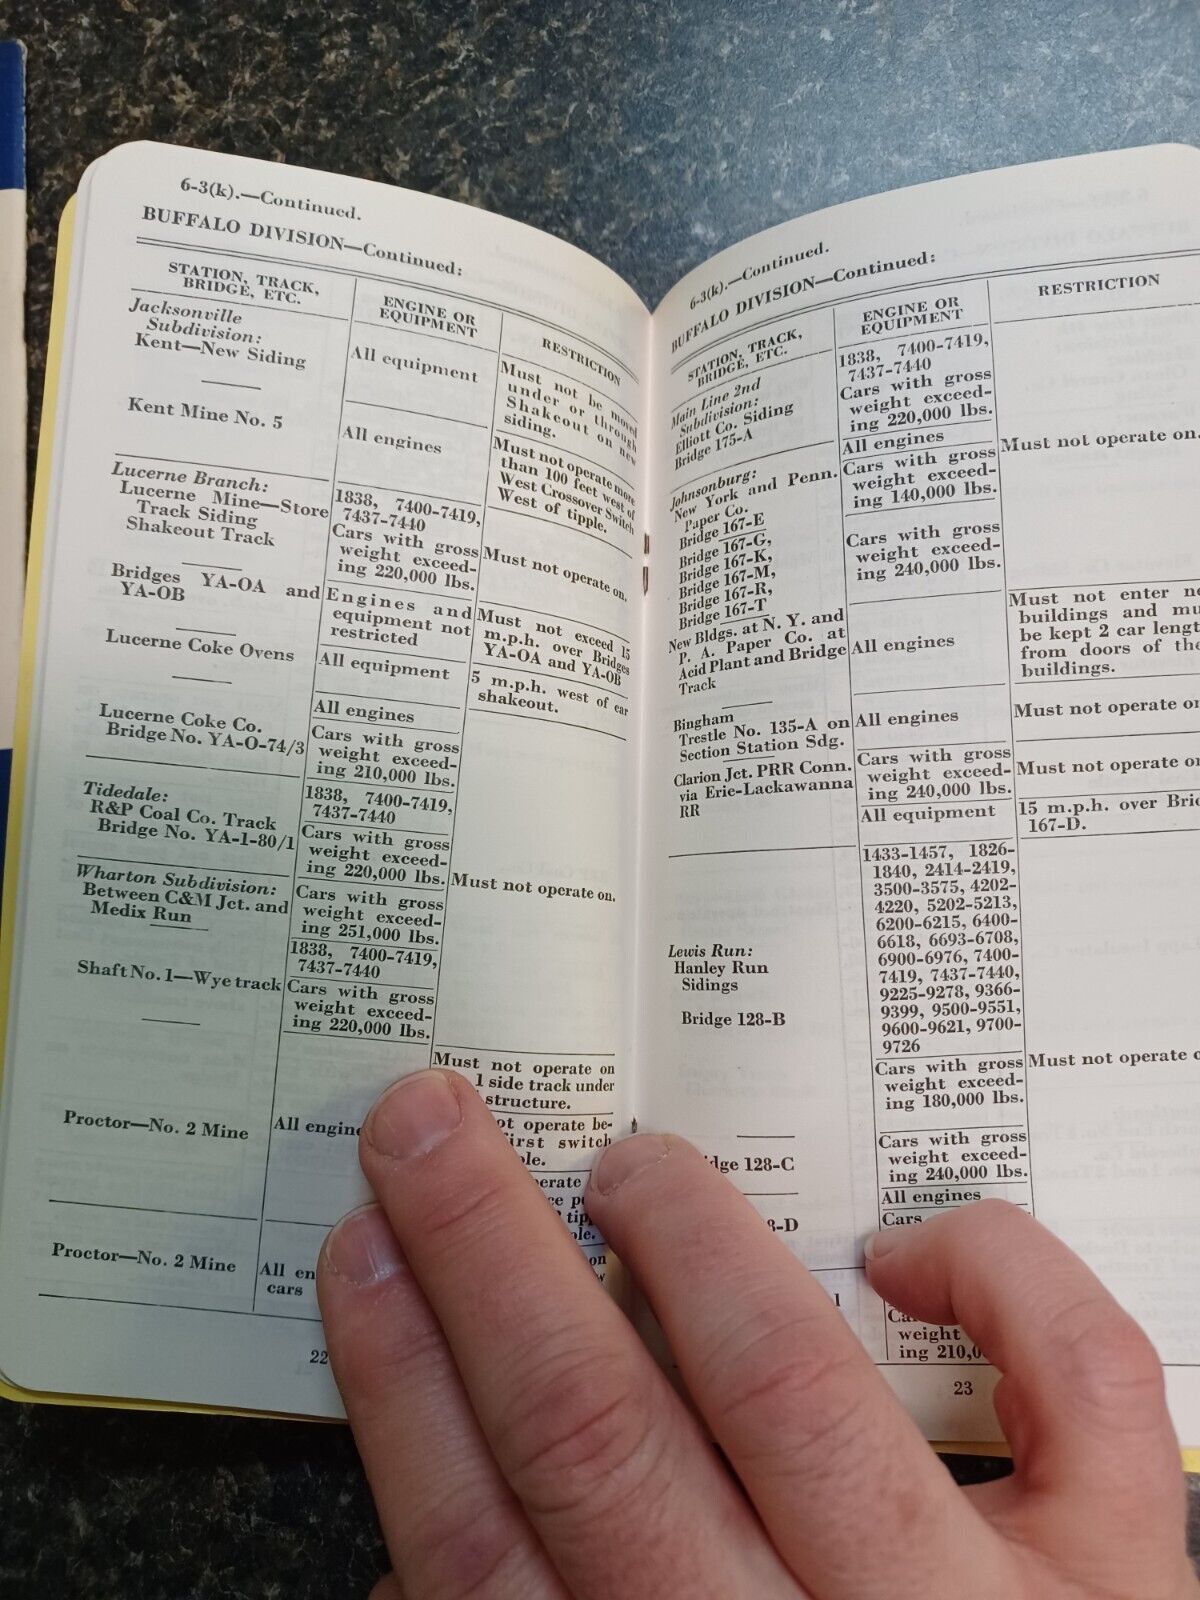 6-3(k).—Continued.
BUFFALO DIVISION—Continued:
STATION, TRACK,
BRIDGE, ETC.
ENGINE OR
EQUIPMENT
RESTRICTION
Jacksonville
Subdivision:
Kent—New Siding
All equipment
Must not be moved
under or through
Shakeout on new
siding.
Kent Mine No. 5
All engines
Must not operate more
than 100 feet west of
West Crossover Switch
West of tipple.
Lucerne Branch:
Lucerne Mine—Store
Track Siding
Shakeout Track
1838, 7400-7419,
7437-7440
Cars with gross
weight exceed-
ing 220,000 lbs.
Must not operate on.
Bridges YA-OA and
YA-OB
Engines and
equipment not
restricted
Must not exceed 15
m.p.h. over Bridges
YA-OA and YA-OB
Lucerne Coke Ovens
All equipment
5 m.p.h. west of car
shakeout.
Lucerne Coke Co.
Bridge No. YA-O-74/3
All engines
Cars with gross
weight exceed-
ing 210,000 lbs.
Tidedale:
R&P Coal Co. Track
Bridge No. YA-1-80/1
1838, 7400-7419,
7437-7440
Cars with gross
weight exceed-
ing 220,000 lbs.
Must not operate on.
Wharton Subdivision:
Between C&M Jct. and
Medix Run
Cars with gross
weight exceed-
ing 251,000 lbs.
Shaft No. 1—Wye track
1838, 7400-7419,
7437-7440
Cars with gross
weight exceed-
ing 220,000 lbs.
Proctor—No. 2 Mine
All engine
Must not operate on
1 side track under
structure.
ot operate be-
first switch
ole.
erate
ce
tip
ole.
Proctor—No. 2 Mine
All en
cars
on
22
6-3(k).—Continued.
BUFFALO DIVISION—Continued:
STATION, TRACK,
BRIDGE, ETC.
ENGINE OR
EQUIPMENT
RESTRICTION
Main Line 2nd
Subdivision:
Elliott Co. Siding
Bridge 175-A
1838, 7400-7419,
7437-7440
Cars with gross
weight exceed-
ing 220,000 lbs.
Must not operate on.
Johnsonburg:
New York and Penn.
Paper Co.
Bridge 167-E
All engines
Cars with gross
weight exceed-
ing 140,000 lbs.
Bridge 167-G,
Bridge 167-K,
Bridge 167-M,
Bridge 167-R,
Bridge 167-T
Cars with gross
weight exceed-
ing 240,000 lbs.
New Bldgs. at N. Y. and
P. A. Paper Co. at
Acid Plant and Bridge
Track
All engines
Must not enter ne
buildings and mu
be kept 2 car lengt
from doors of the
buildings.
Bingham
Trestle No. 135-A on
Section Station Sdg.
All engines
Must not operate on
Cars with gross
weight exceed-
ing 240,000 lbs.
Must not operate on
Clarion Jct. PRR Conn.
via Erie-Lackawanna
RR
All equipment
15 m.p.h. over Bric
167-D.
Lewis Run:
Hanley Run
Sidings
Bridge 128-B
1433-1457, 1826-
1840, 2414-2419,
3500-3575, 4202-
4220, 5202-5213,
6200-6215, 6400-
6618, 6693-6708,
6900-6976, 7400-
7419, 7437-7440,
9225-9278, 9366-
9399, 9500-9551,
9600-9621, 9700-
9726
Cars with gross
weight exceed-
ing 180,000 lbs.
Must not operate o
dge 128-C
Cars with gross
weight exceed-
ing 240,000 lbs.
8-D
All engines
Cars
Ca
weight
ing 210,0
23